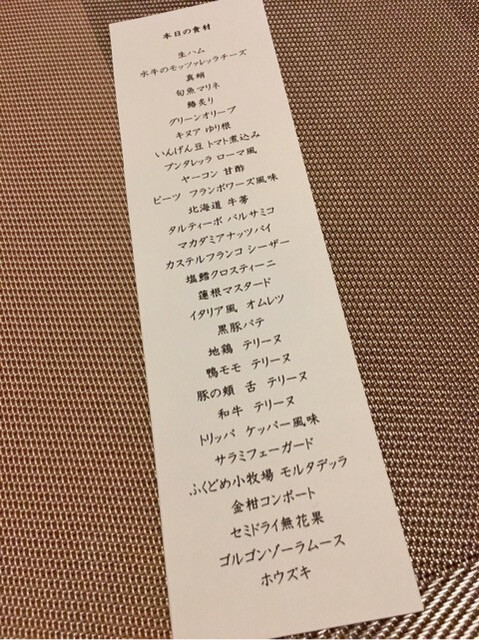 本日の食材
生ハム
水牛のモッツァレッラチーズ
真蛸
旬魚マリネ
鰆炙り
グリーンオリーブ
キヌア ゆり根
いんげん豆 トマト煮込み
プンタレッラ ローマ風
ヤーコン 甘酢
ビーツ フランボワーズ風味
北海道 牛蒡
タルティーボ バルサミコ
マカダミアナッツパイ
カステルフランコ シーザー
塩鱈クロスティーニ
蓮根マスタード
イタリア風 オムレツ
黒豚パテ
地鶏 テリーヌ
鴨モモ テリーヌ
豚の頬 舌 テリーヌ
和牛 テリーヌ
トリッパ ケッパー風味
サラミフェーガード
ふくどめ小牧場 モルタデッラ
金柑コンポート
セミドライ無花果
ゴルゴンゾーラムース
ホウズキ